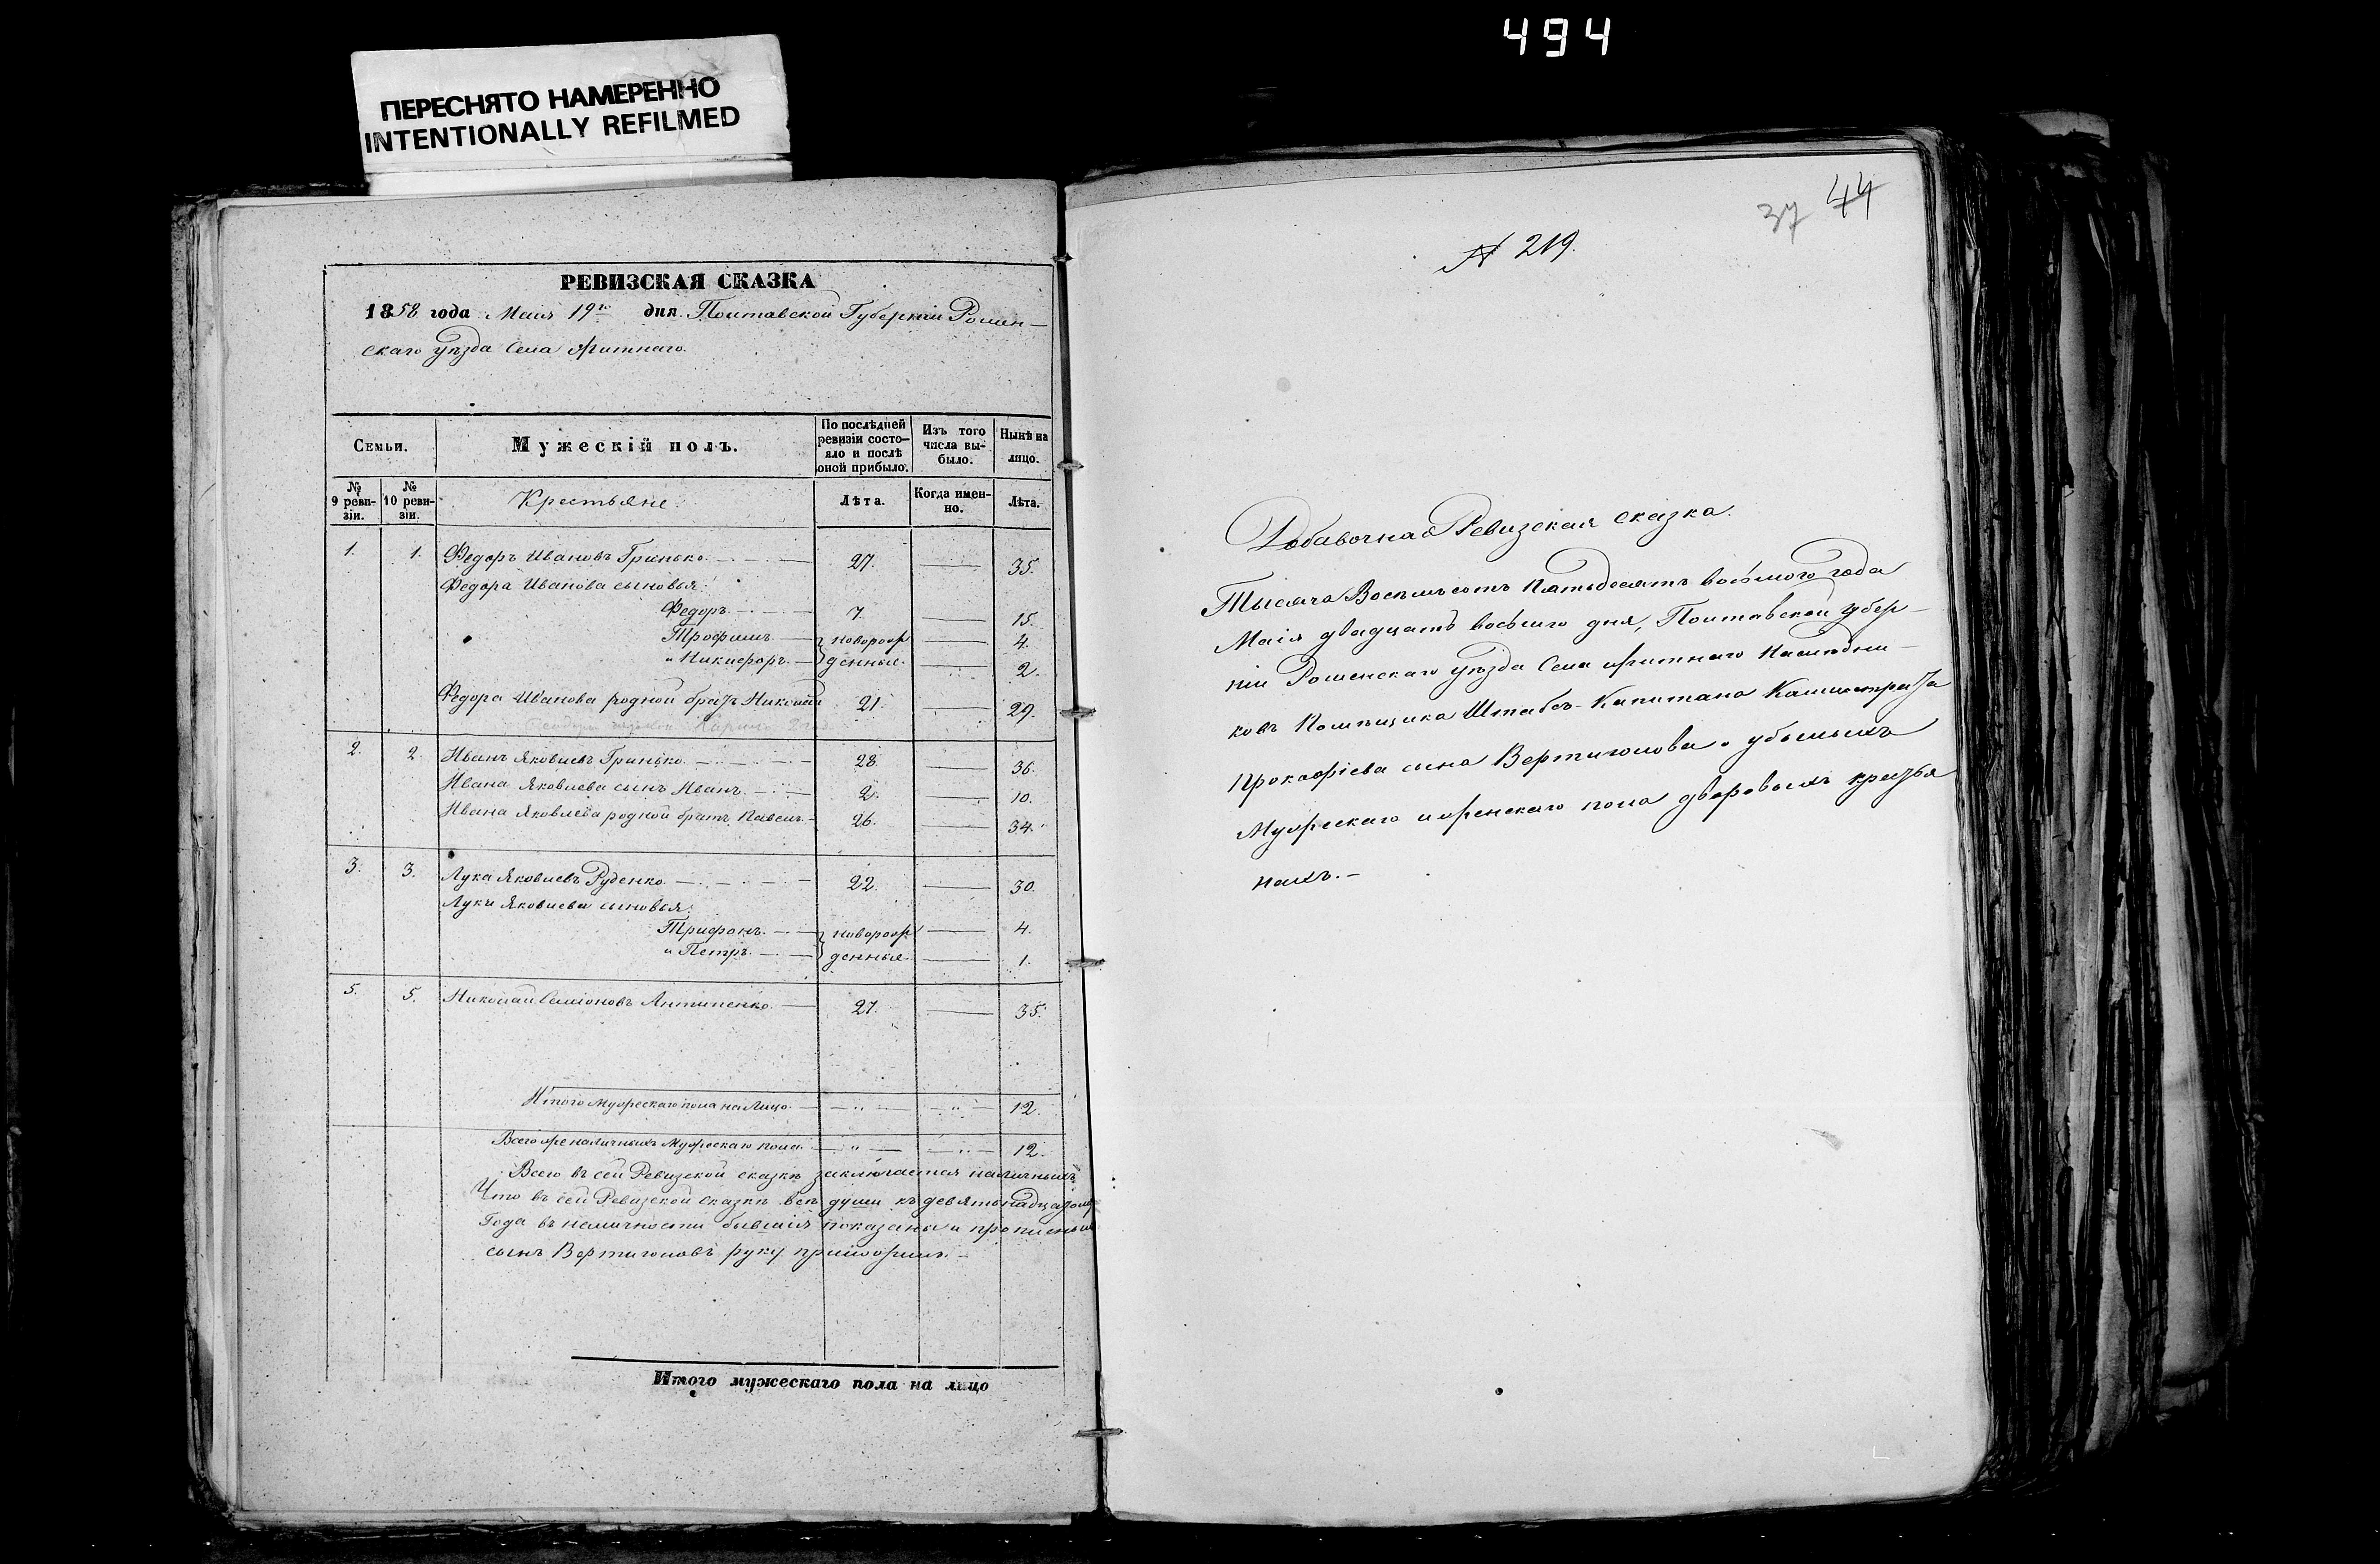 494
ПЕРЕСНЯТО НАМЕРЕННО
INTENTIONALLY REFILMED
РЕВИЗСКАЯ СКАЗКА
1858 года Маия 19го дня Полтавской Губерніи Ромен-
скаго уѣзда Села Житнаго.
Семьи.
Мужескій полъ.
По послѣдней ревизіи состо-яло и послѣ оной прибыло.
Изъ того числа вы-было.
Нынѣ на лицо.
№ 9 реви-зіи.
№ 10 реви-зіи.
Крестьяне.
Лѣта.
Когда имен-но.
Лѣта.
1. 1. Федоръ Ивановъ Гринько 27. 35.
Федора Иванова сыновья:
Федоръ 7. 15.
Трофимъ новорож 4.
и Никифоръ денные. 2.
Федора Иванова родной братъ Николай 21. 29.
2. 2. Иванъ Яковлевъ Гринько 28. 36.
Ивана Яковлева сынъ Иванъ 2. 10.
Ивана Яковлева родной братъ Павелъ 26. 34.
3. 3. Лука Яковлевъ Руденко 22. 30.
Луки Яковлева сыновья:
Трифонъ новорож 4.
и Петръ денныя 1.
5. 5. Николай Семіоновъ Антипенко 27. 35.
Итого мужескаго пола на лицо 12.
Всего же наличныхъ мужескаго пола 12.
Всего въ сей Ревизской сказкѣ заключается наличныхъ
Что въ сей Ревизской сказкѣ всѣ души къ девятьнадцатому
Года въ наличности бывшія показаны и прописныхъ
сынъ Вертильовъ руку приложилъ.
Итого мужескаго пола на лицо
37 44
№ 219.
Добавочная Ревизская сказка.
Тысяча Восемьсотъ Пятьдесятъ восьмого года
Маія двадцать восьмого дня, Полтавской губер-
ніи Роменскаго уѣзда Села Житнаго Наслѣдни-
ковъ Помѣщика Штабсъ-Капитана Калистрата
Прокофіева сына о убылыхъ
Мужескаго и женскаго пола дворовыхъ крестья
нахъ.-